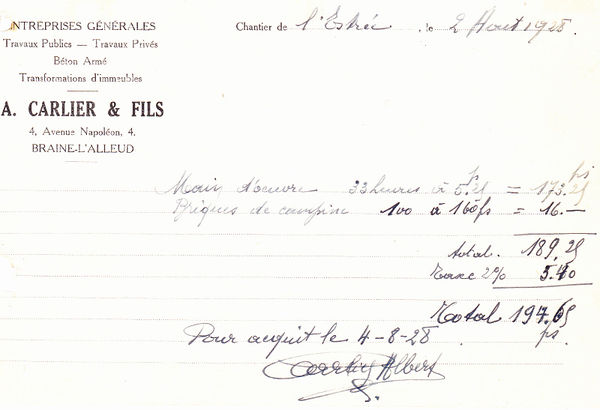 ENTREPRISES GÉNÉRALES
Travaux Publics — Travaux Privés
Béton Armé
Transformations d'immeubles
A. CARLIER & FILS
4, Avenue Napoléon, 4,
BRAINE-L'ALLEUD
Chantier de l'Estrée, le 2 Aout 1928
Main d'œuvre 33 heures à 5.25 = 173.25
Briques de campine 100 à 160 fs = 16.—
total. 189.25
Taxe 2% 5.40
Total 194.65
fs.
Pour acquit le 4-8-28
Carlier Albert